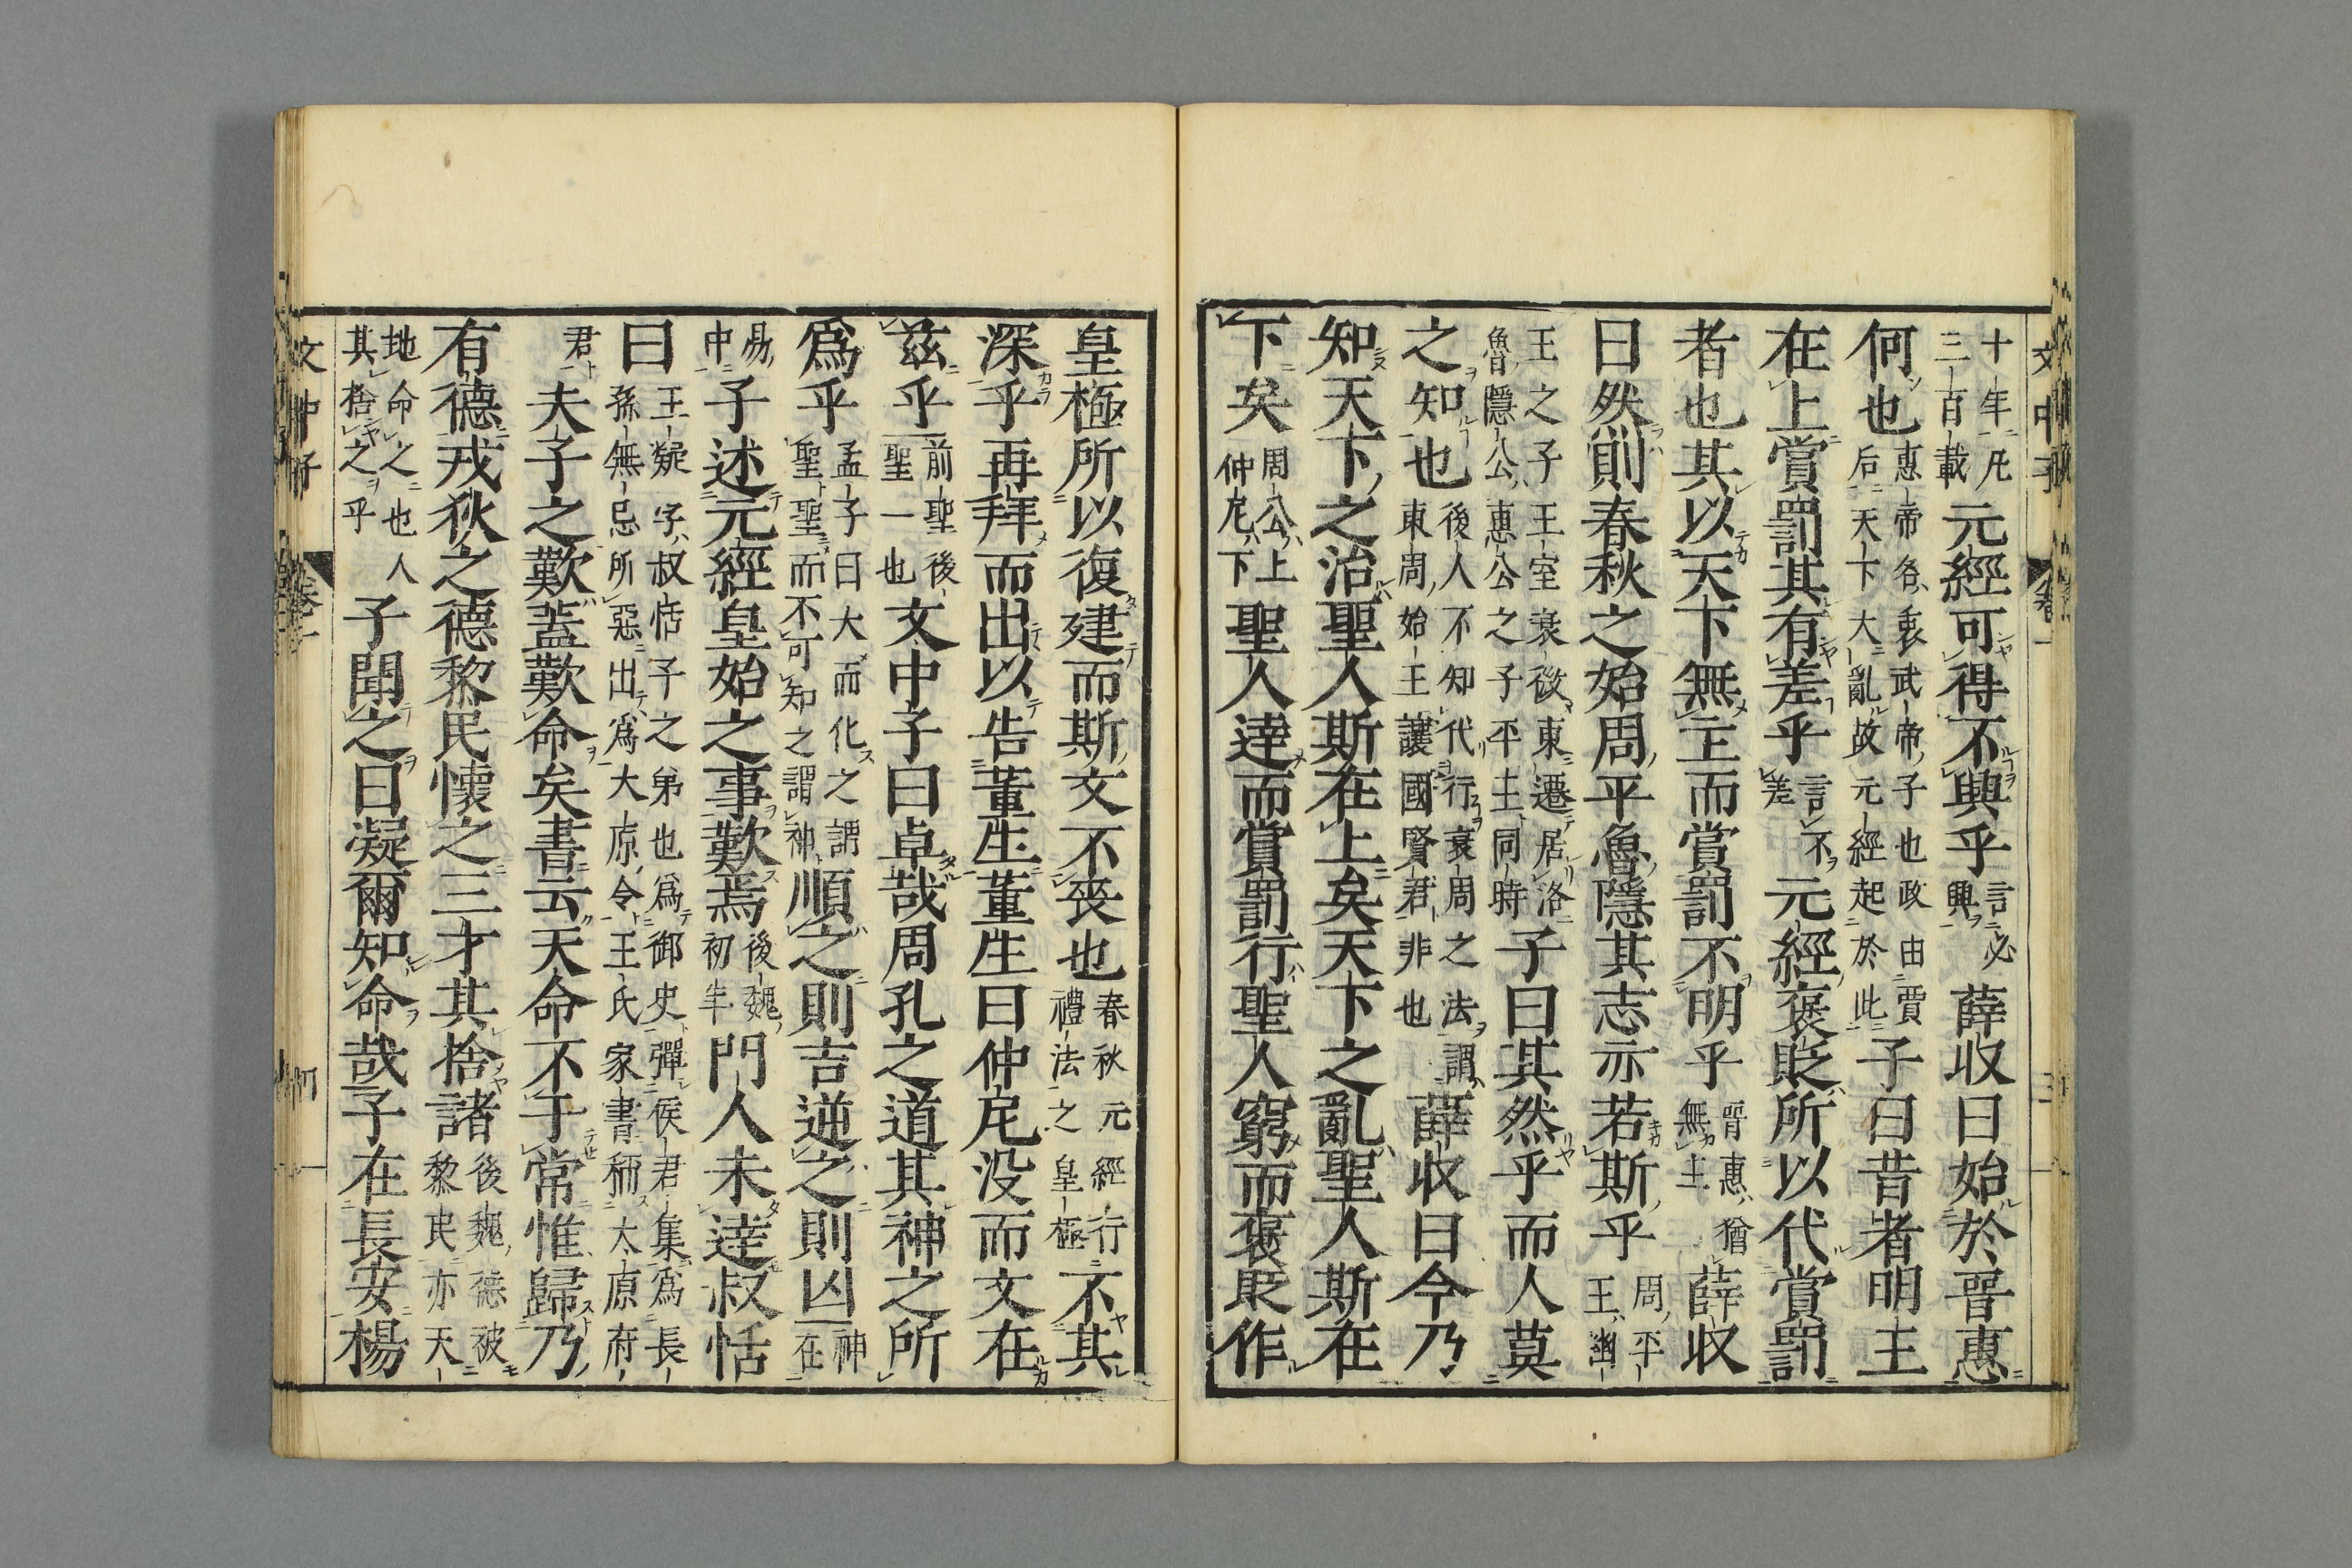 十年凡三百載元經可得不興乎言必興薛收曰始於晉惠
何也惠帝名衷武帝子也政由賈后天下大亂故元經起於此子曰昔者明王
在上賞罰其有差乎言不差元經褒貶所以代賞罰
者也其以天下無主而賞罰不明乎晉惠猶無主薛收
曰然則春秋之始周平魯隱其志亦若斯乎周平王幽
王之子王室衰微東遷居洛魯隱公惠公之子平王同時子曰其然乎而人莫
之知也後人不知代行衰周之法謂東周始王讓國賢君非也薛收曰今乃
知天下之治聖人斯在上矣天下之亂聖人斯在
下矣周公上仲尼下聖人達而賞罰行聖人窮而褒貶作
皇極所以復建而斯文不喪也春秋元經行禮法之皇極不其
深乎再拜而出以告董生董生曰仲尼没而文在
茲乎前聖後聖一也文中子曰卓哉周孔之道其神之所
爲乎孟子曰大而化之謂聖聖而不可知之謂神順之則吉逆之則凶神在
易中子述元經皇始之事歎焉後魏初年門人未達叔恬
曰王凝字叔恬子之弟也爲御史彈侯君集爲長孫無忌所惡出爲大原令王氏家書稱太原府
君夫子之歎蓋歎命矣書云天命不于常惟歸乃
有德戎狄之德黎民懷之三才其捨諸後魏德被黎民亦天
地命之也人其捨之乎子聞之曰凝爾知命哉子在長安楊
文中子
卷一
三